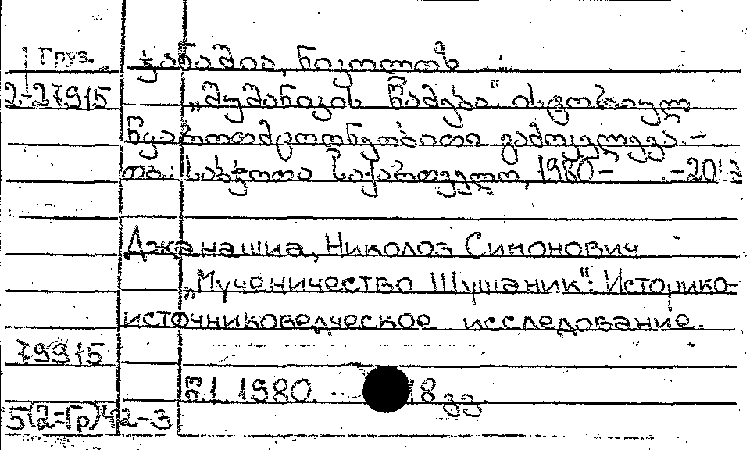 Груз.
ჯანაშია, ნიკოლოზ
2-27915 „შუშანიკის წამება“ ისტორიულ
წყაროთმცოდნეობითი გამოკვლევა.-
თბ.: საბჭოთა საქართველო, 1980- -20
Джанашиа, Николоз Симонович
„Мученичество Шушаник“: Историко-
источниковедческое исследование.
79915
წ.1 1980. 18 გვ
5(2=Гр)42-3